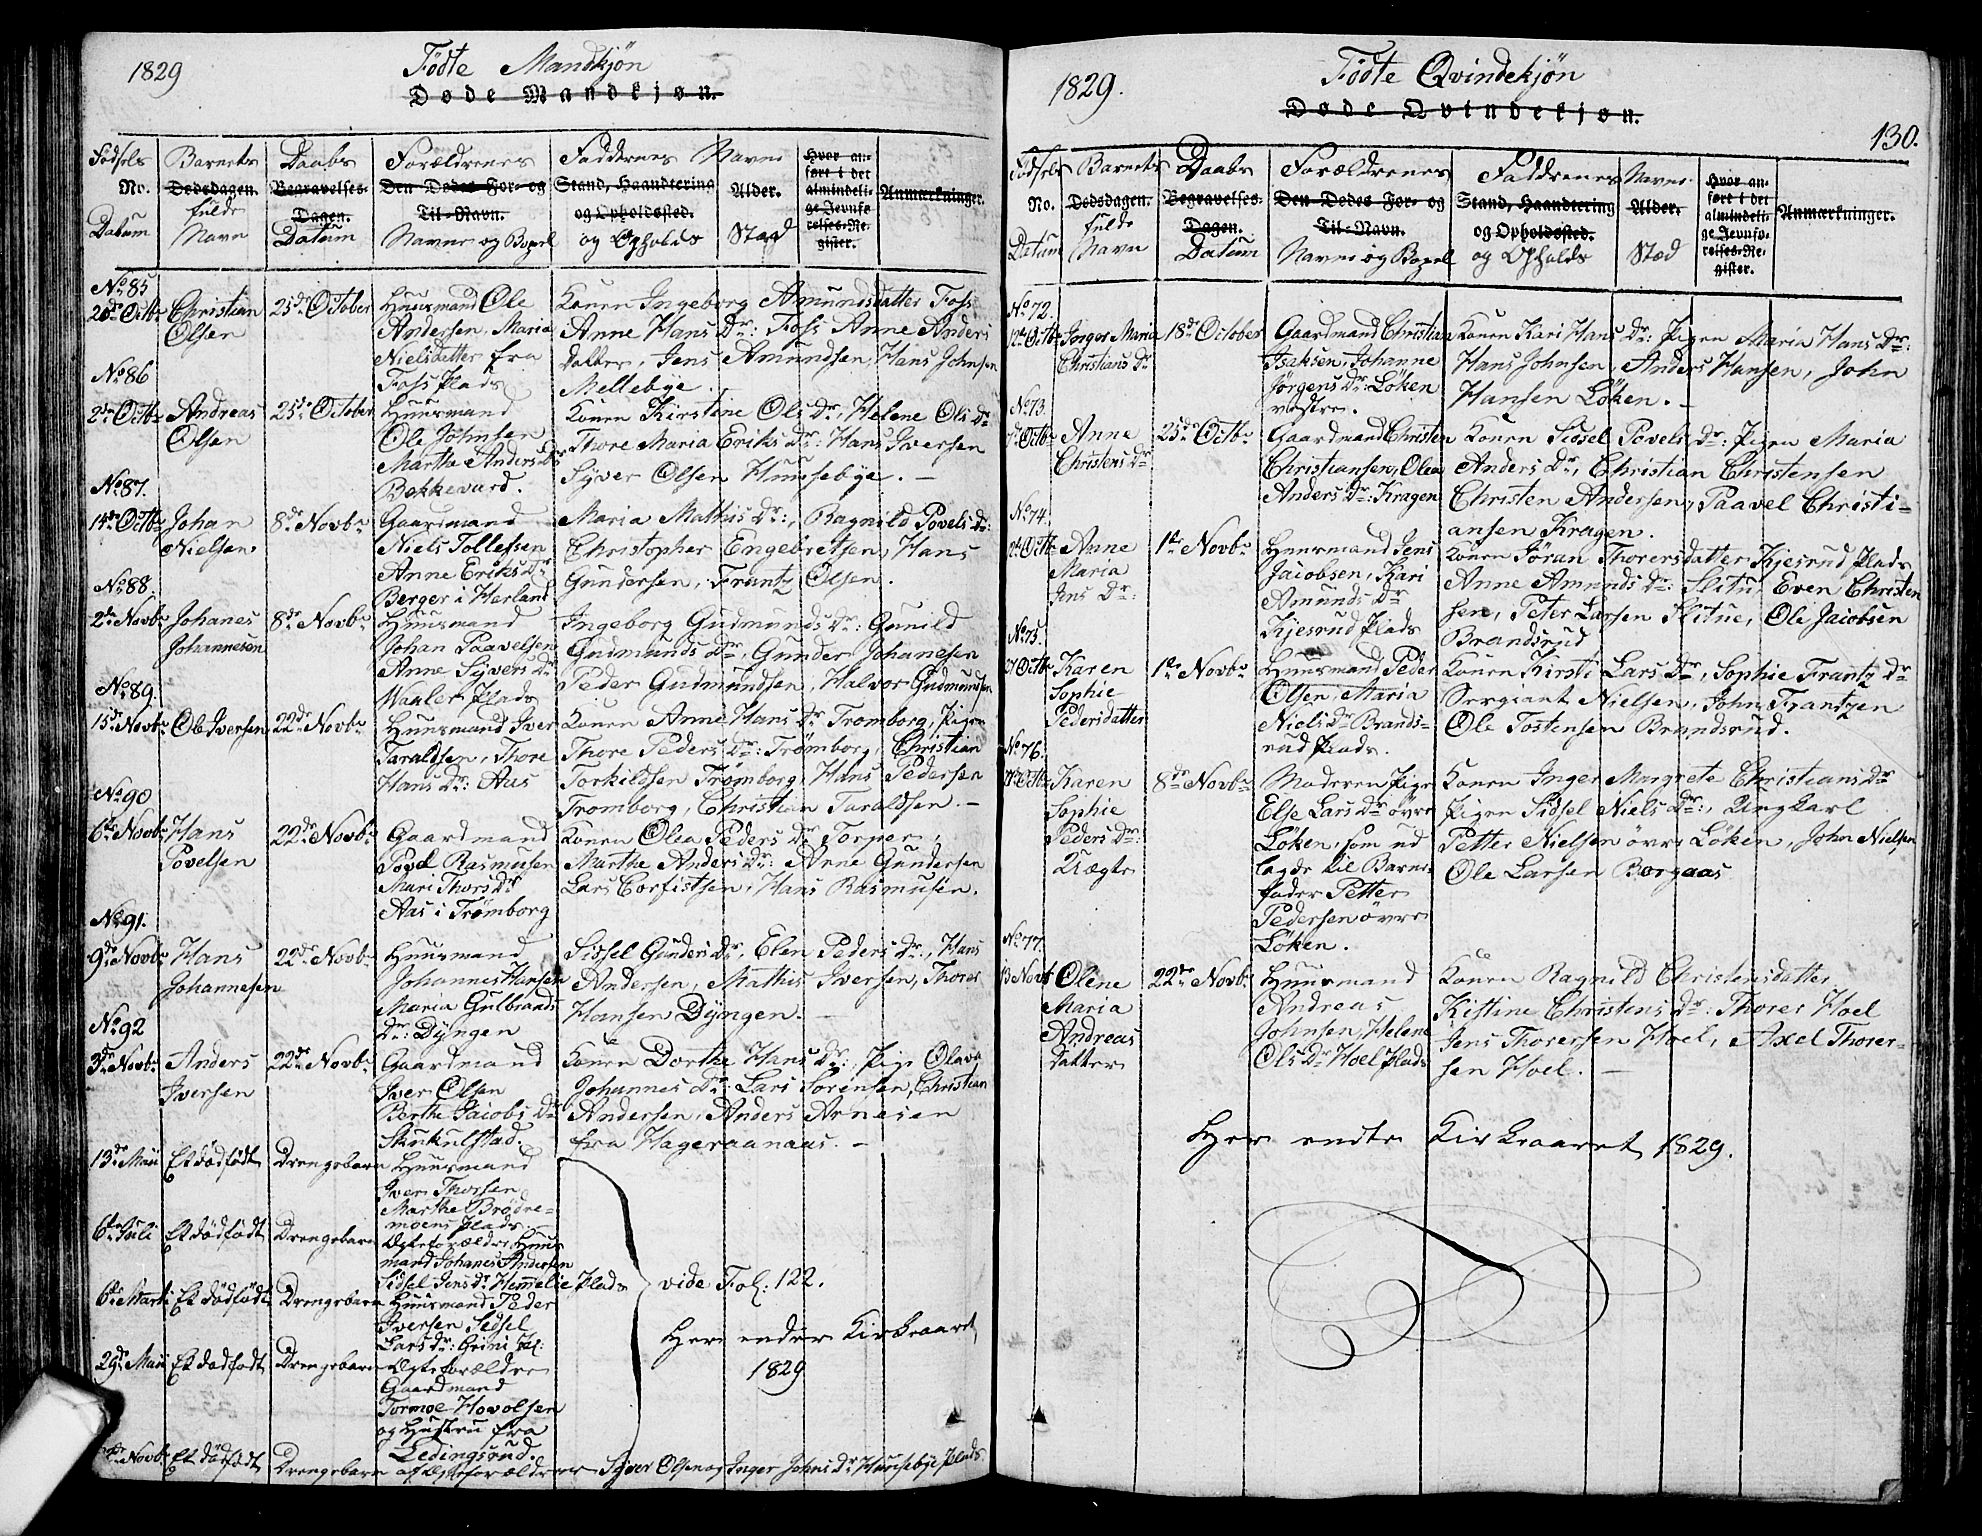 1829
Födte Mandkjön
Døde Mandkjøn.
Födsels No. Datum
Barnets Dødsdagen. fulde Navn
Daabs Begravelses-Dagen. Datum
Forældrenes Den Dødes For- og Til-Navn. Navne og Bopel
Faddernes Stand, Haandtering og Opholdssted. og Opholds
Navne Alder. Stæd
Hvor anført i det almindelige Jevnførelses-Register.
Anmærkninger.
No 85
20de Octbr Christian Olsen
25de October
Huusmand Ole
Andersen, Maria
Nielsdatter fra
Foss Plads
Konen Ingeborg Amundsdatter Foss
Anne Hans Dr: Foss Anne Anders
Datter, Jens Amundsen, Hans Johnsen
Mellebye.
No 86
2de Octbr Andreas Olsen
25de October
Huusmand
Ole Johnsen
Marthe Anders Dr
Bekkevard.
Konen Kirstine Ols Dr, Helene Ols Dr
Thore Maria Eriks Dr: Hans Iversen
Syver Olsen Huusebye. —
No 87.
14de Octbr Johan Nielsen.
8de Novbr
Gaardmand
Niels Tollefsen
Anne Eriks Dr
Berger i Herland
Maria Mathis Dr:, Ragnild Povels Dr:
Christopher Engebretsen, Hans
Gundersen, Frantz Olsen.
No 88.
2de Novbr Johanes Johannesen
8de Novbr
Huusmand
Johan Paavelsen
Anne Syvers Dr
Waaler Plads
Ingeborg Gudmunds Dr: Gunild
Gudmunds Dr, Gunder Johanesen
Peder Gudmundsen, Halvor Gudmundsen
No 89.
15de Novbr Ole Iversen
22de Novbr
Huusmand Iver
Taraldsen, Thore
Hans Dr: Aas
Konen Anne Hans Dr Tromborg, Pigen
Thore Peders Dr: Trömborg, Christian
Torkildsen Trömborg, Hans Pedersen
Tromborg, Christian Taraldsen. —
No 90
6te Novbr Hans Povelsen
22de Novbr
Gaardmand
Povel Rasmusen
Mari Thors Dr
Aas i Trömborg
Konen Olea Peders Dr Torper,
Marthe Anders Dr: Anne Gundersen
Lars Corfistsen, Hans Rasmusen.
No 91.
9de Novbr Hans Johannesen
22de Novbr
Huusmand
Johannes Hansen
Maria Gulbrands
Dr: Dÿngen
Sidsel Gunders Dr, Elen Peders Dr., Hans
Andersen, Mathis Iversen, Thores
Hansen Dÿngen. —
No 92
3de Novbr Anders Iversen
22de Novbr
Gaardmand
Iver Olsen
Berthe Jacobs Dr
Skukulstad.
Konen Dorthe Hans Dr: Pige Olava
Johannes Dr: Lars Sörensen, Christian
Andersen, Anders Arnesen
fra Hageraanaas. —
13de Maii Et dödfödt Drengebarn
Huusmand
Iver Thorsen
Marthe Brödre-
moens Plads.
6te Juli Et dödfödt Drengebarn
Ægteforældre Huus
mand Johanes Andersen
Sidsel Jens Dr Hemmelie Plads
6te Marti Et dödfödt Drengebarn
Huusmand Peder
Iversen Sidsel
Lars Dr: Grini Pl:
29de Maii Et dödfödt Drengebarn
Ægteforældre
Gaardmand
Tormoe Hovolsen
og Hustru fra
Ledingsrud.
vide Fol: 122.
Her ender Kirkeaaret
1829
Novbr Et dödfödt Drengebarn af Ægteforældrene Syver Olsen og Inger Johns Dr Huusebye Plads
1829.
Födte Qvindekjön
Døde Qvindekjøn.
130.
Födsels No. Datum
Barnets Dødsdagen. fulde Navn
Daabs Begravelses-Dagen. Datum
Forældrenes Den Dødes For- og Til-Navn. Navne og Bopel
Faddrenes Stand, Haandtering og Opholdssted. og Opholds
Navne Alder. Stæd
Hvor anført i det almindelige Jevnførelses-Register.
Anmærkninger.
No 72.
12te Octbr Inger Maria Christians Dr
18de October
Gaardmand Christian
Isaksen, Johanne
Jörgens Dr: Löken
vestre.
Konen Kari Hans Dr: Pigen Maria Hans Dr:
Hans Johnsen, Anders Hansen, John
Hansen Löken. —
No 73.
7de Octbr Anne Christens Dr
25de Octbr
Gaardmand Christen
Christiansen, Olea
Anders Dr: Kragen
Konen Sidsel Povels Dr: Pigen Maria
Anders Dr, Christian Christensen
Christen Andersen, Paavel Christi-
ansen Kragen.
No 74.
12te Octbr Anne Maria Jens Dr:
1te Novbr
Huusmand Jens
Jacobsen, Kari
Amunds Dr
Kjesrud Plads
Konen Jöran Thorersdatter Kjesrud Plads
Anne Amunds Dr: Slitu, Even Christen
sen, Peter Larsen Slitue, Ole Jacobsen
Brandsrud
No 75.
27 Octbr Karen Sophie Pedersdatter
1te Novbr
Huusmand Peder
Olsen, Maria
Niels Dr Brands-
rud Plads.
Konen Kirsti Lars Dr, Sophie Frantz Dr
Sergiant Nielsen, John Frantzen
Ole Tostensen Brandsrud.
No 76.
Octbr Karen Sophie Peders Dr: Uægte
8de Novbr
Moderen Pige
Else Lars Dr övre
Löken, som ud
lagde til Barne-
fader Petter
Pedersen övre
Löken.
Konen Inger Margrete Christians Dr
Pigen Sidsel Niels Dr:, Ungkarl
Petter Nielsen övre Löken, John Nielsen
Ole Larsen Borgaas
No 77.
13 Novbr Olene Maria Andreas Datter
22de Novbr
Huusmand
Andreas
Johnsen, Helene
Ols Dr Hoel Plads
Konen Ragnild Christensdatter
Kistine Christens Dr: Thores Hoel
Jens Thoresen Hoel, Axel Thorer-
sen Hoel. —
Her endte Kirkeaaret 1829.